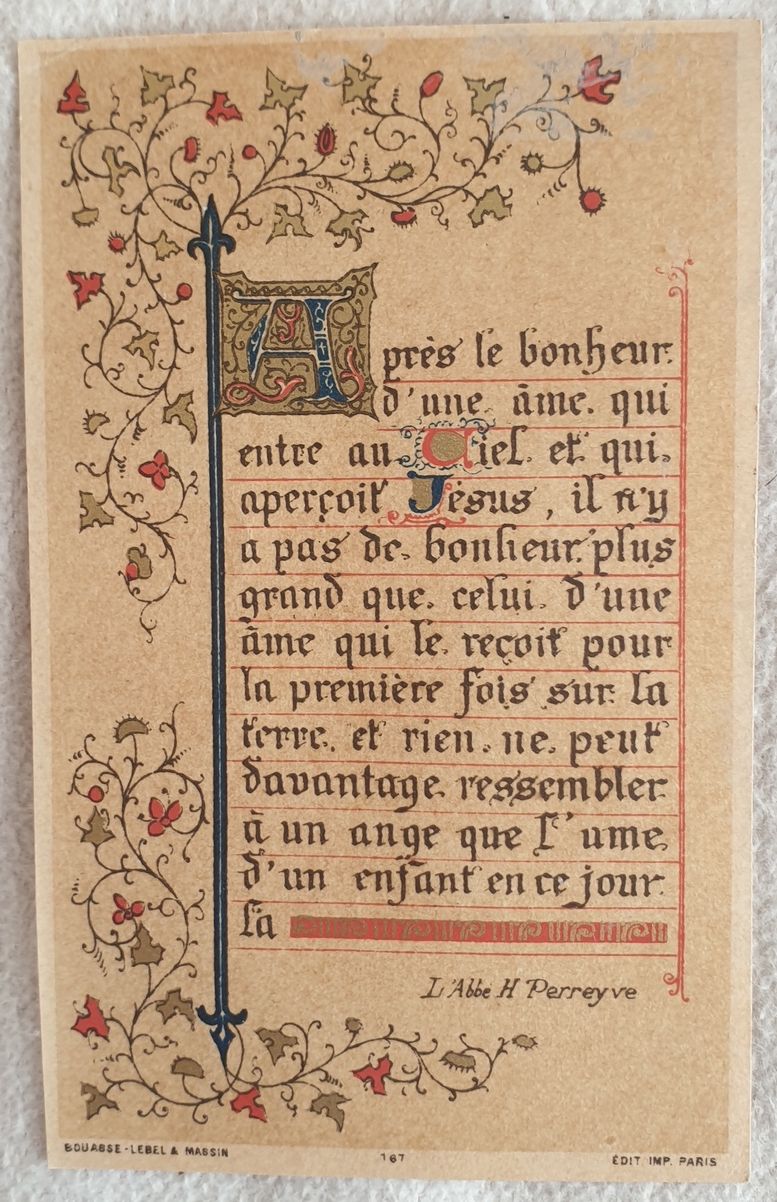 Après le bonheur
d'une âme qui
entre au Ciel et qui
aperçoit Jésus, il n'y
a pas de bonheur plus
grand que celui d'une
âme qui le reçoit pour
la première fois sur la
terre, et rien ne peut
davantage ressembler
à un ange que l'ame
d'un enfant en ce jour
là
L'Abbé H Perreyve
BOUASSE-LEBEL & MASSIN
167
ÉDIT. IMP. PARIS